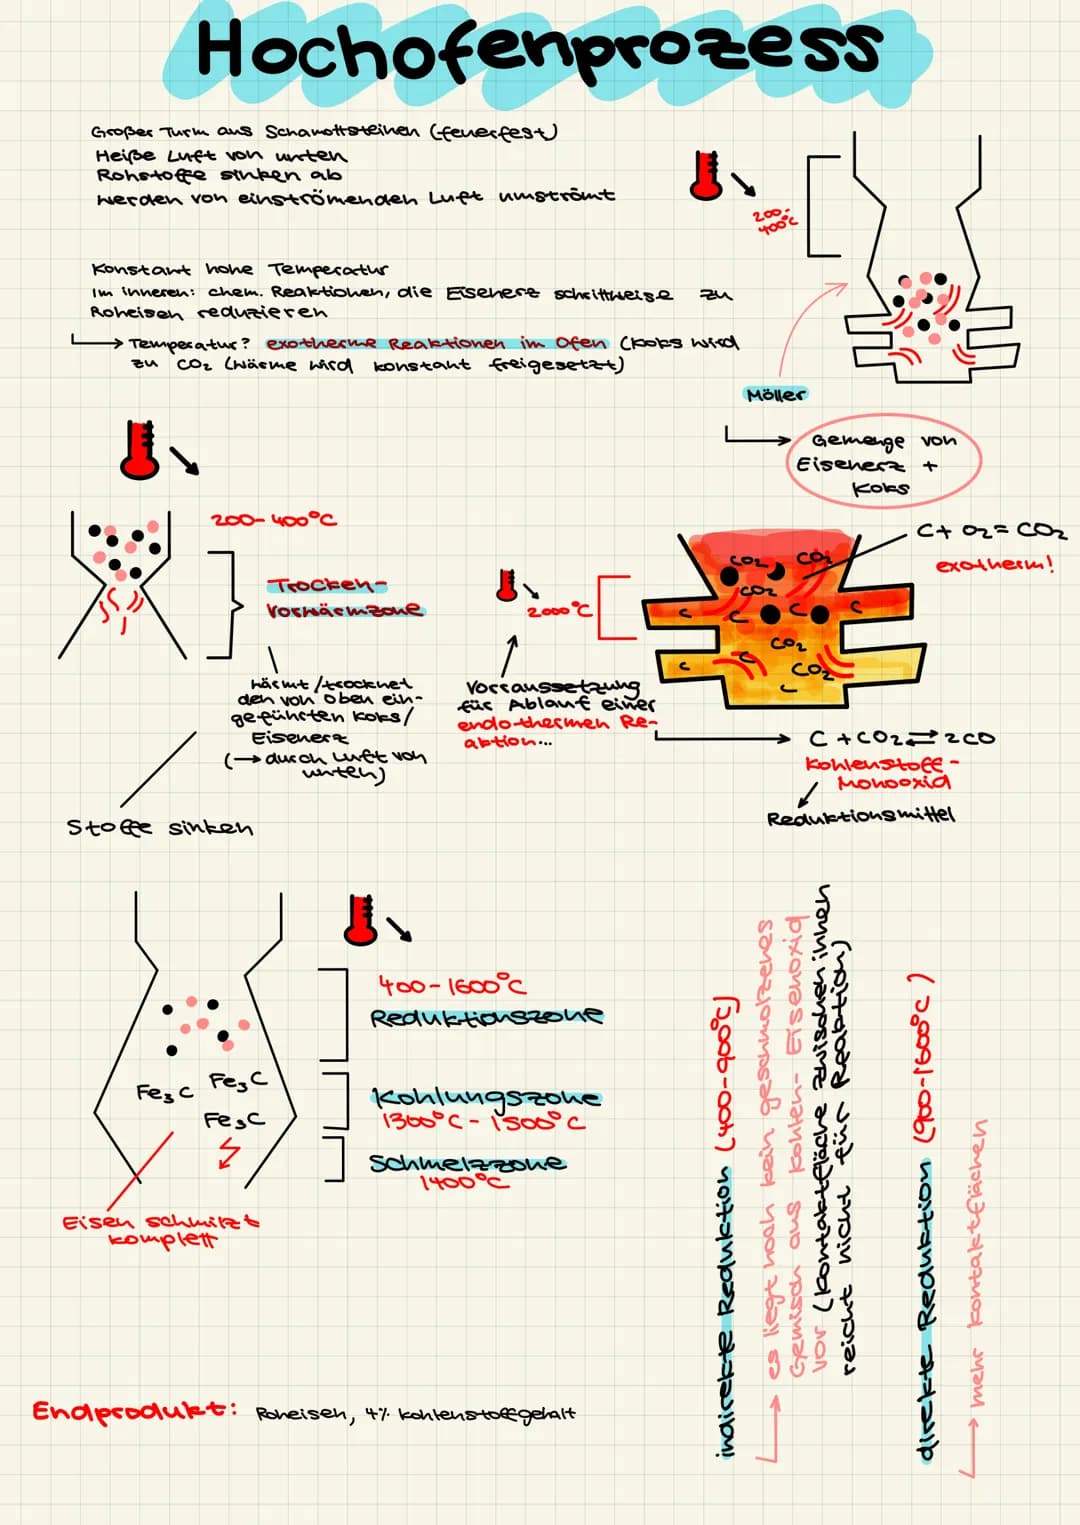 Hochofenprozess
Großer Turm aus Schamottsteinen (feuerfest)
Heiße Luft von unten
Rohstoffe sinken ab
werden von einströmenden Luft umströmt
200-
400°C
Konstant hohe Temperatur
Im inneren: chem. Reaktionen, die Eisenerz schrittweise zu
Roheisen reduzieren
→ Temperatur? exotherme Reaktionen im Ofen (Koks wird
zu CO₂ (Wärme wird konstant freigesetzt)
Möller
→ Gemenge von
Eisenerz +
Koks
200-400°C
Trocken-
vorwärmzone
wärmt/trocknet
den von oben ein-
geführten Koks/
Eisenerz
(→ durch Luft von
unten)
Stoffe sinken
2000°C
Vorraussetzung
für Ablauf einer
endothermen Re-
aktion...
C + O₂ = CO₂
exotherm!
CO₂ CO₂
CO₂
C C C C
CO₂
C C CO₂
C
→ C + CO₂ ⇌ 2CO
Kohlenstoff-
Monooxid
Reduktionsmittel
400-1600°C
Reduktionszone
Fe₃C Fe₃C
Fe₃C
Kohlungszone
1300°C - 1500°C
Schmelzzone
1400°C
Eisen schmilzt
komplett
indirekte Reduktion (400-900°C)
→ es liegt noch kein geschmolzenes
Gemisch aus Kohlen- Eisenoxid
vor (Kontaktfläche zwischen ihnen
reicht nicht für Reaktion)
direkte Reduktion (900-1600°C)
→ mehr Kontaktflächen
Endprodukt: Roheisen, 4% Kohlenstoffgehalt